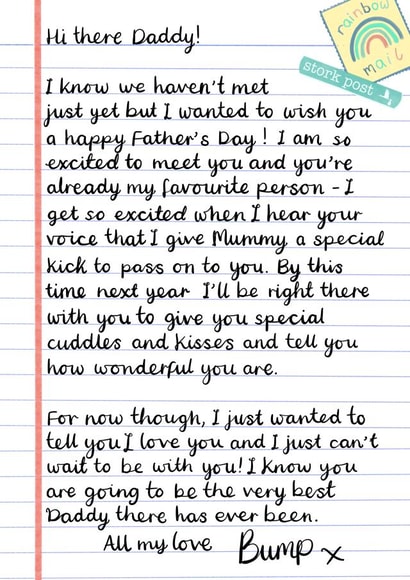 Hi there Daddy!
rainbow
mail
stork post
I know we haven't met
just yet but I wanted to wish you
a happy Father's Day! I am so
excited to meet you and you're
already my favourite person - I
get so excited when I hear your
voice that I give Mummy a special
kick to pass on to you. By this
time next year I'll be right there
with you to give you special
cuddles and kisses and tell you
how wonderful you are.
For now though, I just wanted to
tell you I love you and I just can't
wait to be with you! I know you
are going to be the very best
Daddy there has ever been.
All my love Bump x